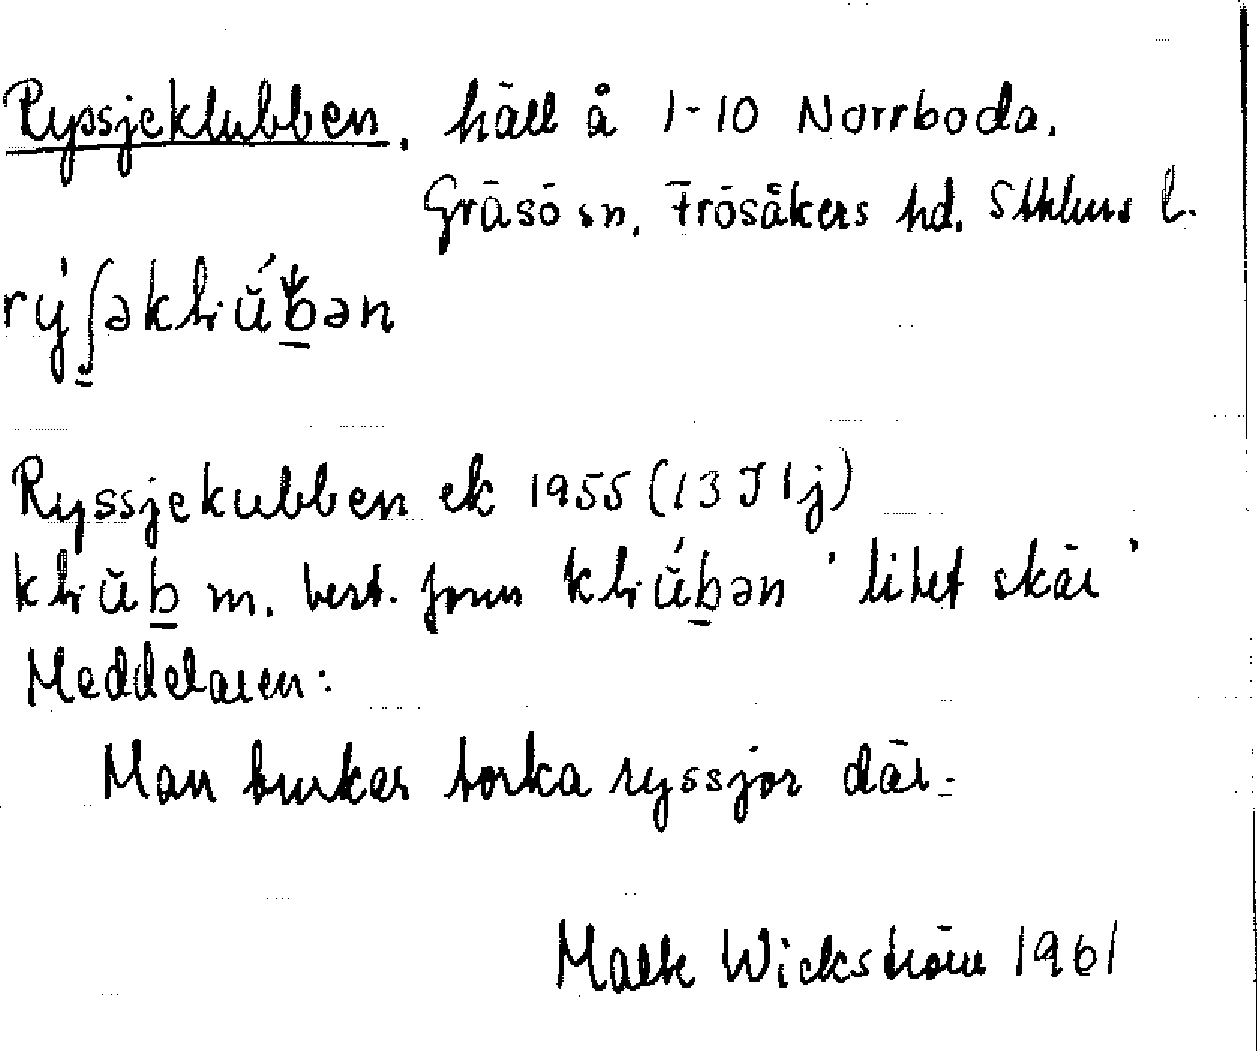 Ryssjeklubben, häll å 1-10 Norrboda.
Gräsö sn, Frösåkers hd. Sthlms l.
rýʃəklŭ́bən
Ryssjekubben ek 1955 (13 I 1j)
klŭb m. best. form klŭ́bən 'litet skär'
Meddelaren:
Man brukar torka ryssjor där.
Wickström 1961